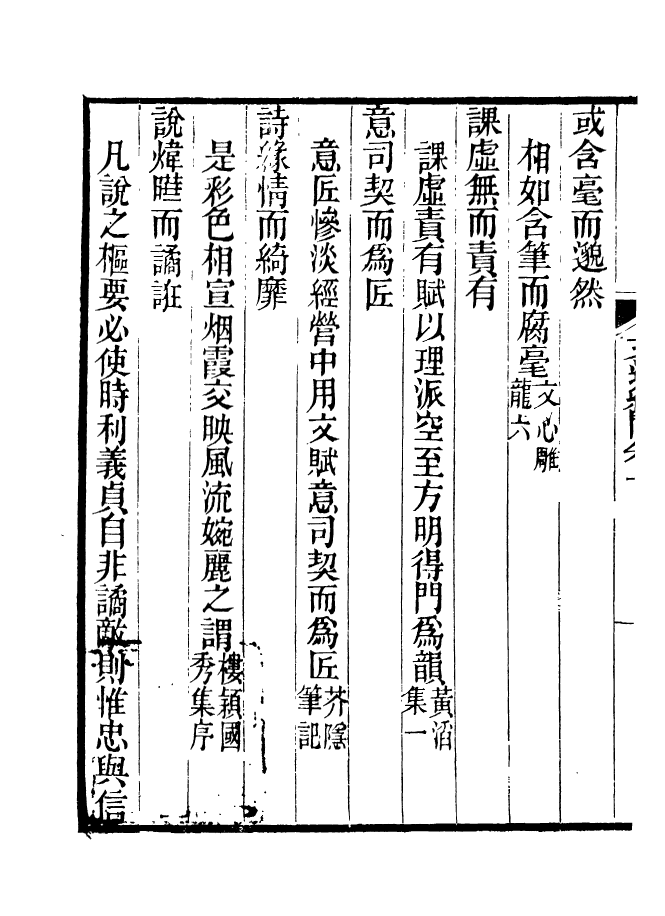 或含毫而邈然
相如含筆而腐毫文心雕龍六
課虛無而責有
課虛責有賦以理派空至方明得門爲韻黃滔集一
意司契而爲匠
意匠慘淡經營中用文賦意司契而爲匠芥隱筆記
詩緣情而綺靡
是彩色相宣烟霞交映風流婉麗之謂樓穎國秀集序
說煒曄而譎誑
凡說之樞要必使時利義貞自非譎敵則惟忠與信